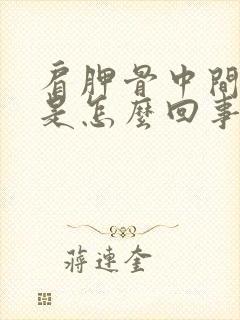 肩胛骨中間
是怎麼回事
蔣連奎